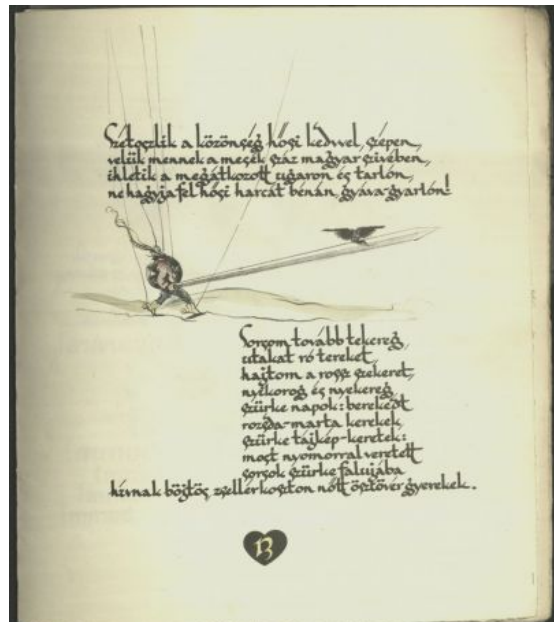 Szétoszlik a közönség hősi kedvvel, szépen,
velük mennek a mesék száz magyar szivében,
ihletik a megátkozott ugaron és tarlón,
ne hagyja fel hősi harcát bénán, gyáva-gyarlón!
Sorsom tovább tekereg,
utakat ró tereket,
hajtom a rossz szekeret,
nyikorog és nyekereg
szürke napok: berekedt
rozsda-marta kerekek,
szürke tájkép-keretek:
most nyomorral veretett
sorsok szürke falujába
hívnak böjtös zsellérkoszton nőtt ösztövér gyerekek.
13